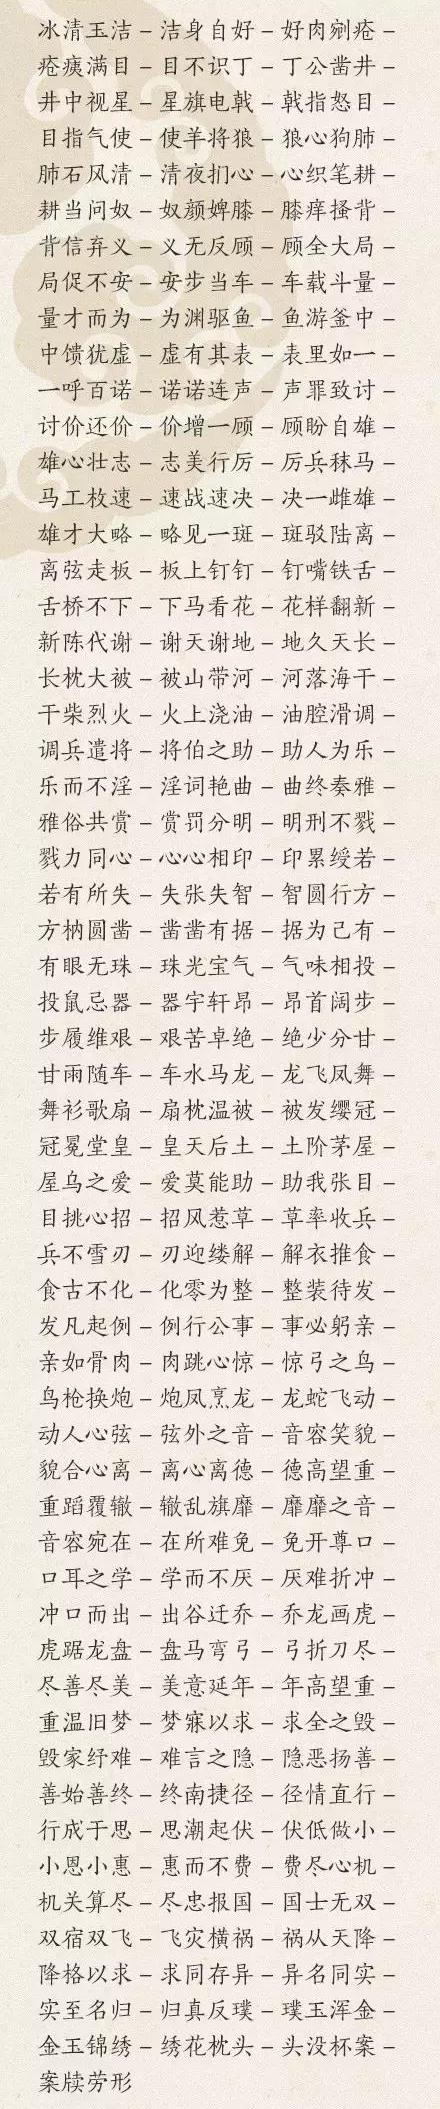 冰清玉洁 – 洁身自好 – 好肉剜疮 –
疮痍满目 – 目不识丁 – 丁公凿井 –
井中视星 – 星旗电戟 – 戟指怒目 –
目指气使 – 使羊将狼 – 狼心狗肺 –
肺石风清 – 清夜扪心 – 心织笔耕 –
耕当问奴 – 奴颜婢膝 – 膝痒搔背 –
背信弃义 – 义无反顾 – 顾全大局 –
局促不安 – 安步当车 – 车载斗量 –
量才而为 – 为渊驱鱼 – 鱼游釜中 –
中馈犹虚 – 虚有其表 – 表里如一 –
一呼百诺 – 诺诺连声 – 声罪致讨 –
讨价还价 – 价增一顾 – 顾盼自雄 –
雄心壮志 – 志美行厉 – 厉兵秣马 –
马工枚速 – 速战速决 – 决一雌雄 –
雄才大略 – 略见一斑 – 斑驳陆离 –
离弦走板 – 板上钉钉 – 钉嘴铁舌 –
舌桥不下 – 下马看花 – 花样翻新 –
新陈代谢 – 谢天谢地 – 地久天长 –
长枕大被 – 被山带河 – 河落海干 –
干柴烈火 – 火上浇油 – 油腔滑调 –
调兵遣将 – 将伯之助 – 助人为乐 –
乐而不淫 – 淫词艳曲 – 曲终奏雅 –
雅俗共赏 – 赏罚分明 – 明刑不戮 –
戮力同心 – 心心相印 – 印累绶若 –
若有所失 – 失张失智 – 智圆行方 –
方枘圆凿 – 凿凿有据 – 据为己有 –
有眼无珠 – 珠光宝气 – 气味相投 –
投鼠忌器 – 器宇轩昂 – 昂首阔步 –
步履维艰 – 艰苦卓绝 – 绝少分甘 –
甘雨随车 – 车水马龙 – 龙飞凤舞 –
舞衫歌扇 – 扇枕温被 – 被发缨冠 –
冠冕堂皇 – 皇天后土 – 土阶茅屋 –
屋乌之爱 – 爱莫能助 – 助我张目 –
目挑心招 – 招风惹草 – 草率收兵 –
兵不雪刃 – 刃迎缕解 – 解衣推食 –
食古不化 – 化零为整 – 整装待发 –
发凡起例 – 例行公事 – 事必躬亲 –
亲如骨肉 – 肉跳心惊 – 惊弓之鸟 –
鸟枪换炮 – 炮凤烹龙 – 龙蛇飞动 –
动人心弦 – 弦外之音 – 音容笑貌 –
貌合心离 – 离心离德 – 德高望重 –
重蹈覆辙 – 辙乱旗靡 – 靡靡之音 –
音容宛在 – 在所难免 – 免开尊口 –
口耳之学 – 学而不厌 – 厌难折冲 –
冲口而出 – 出谷迁乔 – 乔龙画虎 –
虎踞龙盘 – 盘马弯弓 – 弓折刀尽 –
尽善尽美 – 美意延年 – 年高望重 –
重温旧梦 – 梦寐以求 – 求全之毁 –
毁家纾难 – 难言之隐 – 隐恶扬善 –
善始善终 – 终南捷径 – 径情直行 –
行成于思 – 思潮起伏 – 伏低做小 –
小恩小惠 – 惠而不费 – 费尽心机 –
机关算尽 – 尽忠报国 – 国士无双 –
双宿双飞 – 飞灾横祸 – 祸从天降 –
降格以求 – 求同存异 – 异名同实 –
实至名归 – 归真反璞 – 璞玉浑金 –
金玉锦绣 – 绣花枕头 – 头没杯案 –
案牍劳形